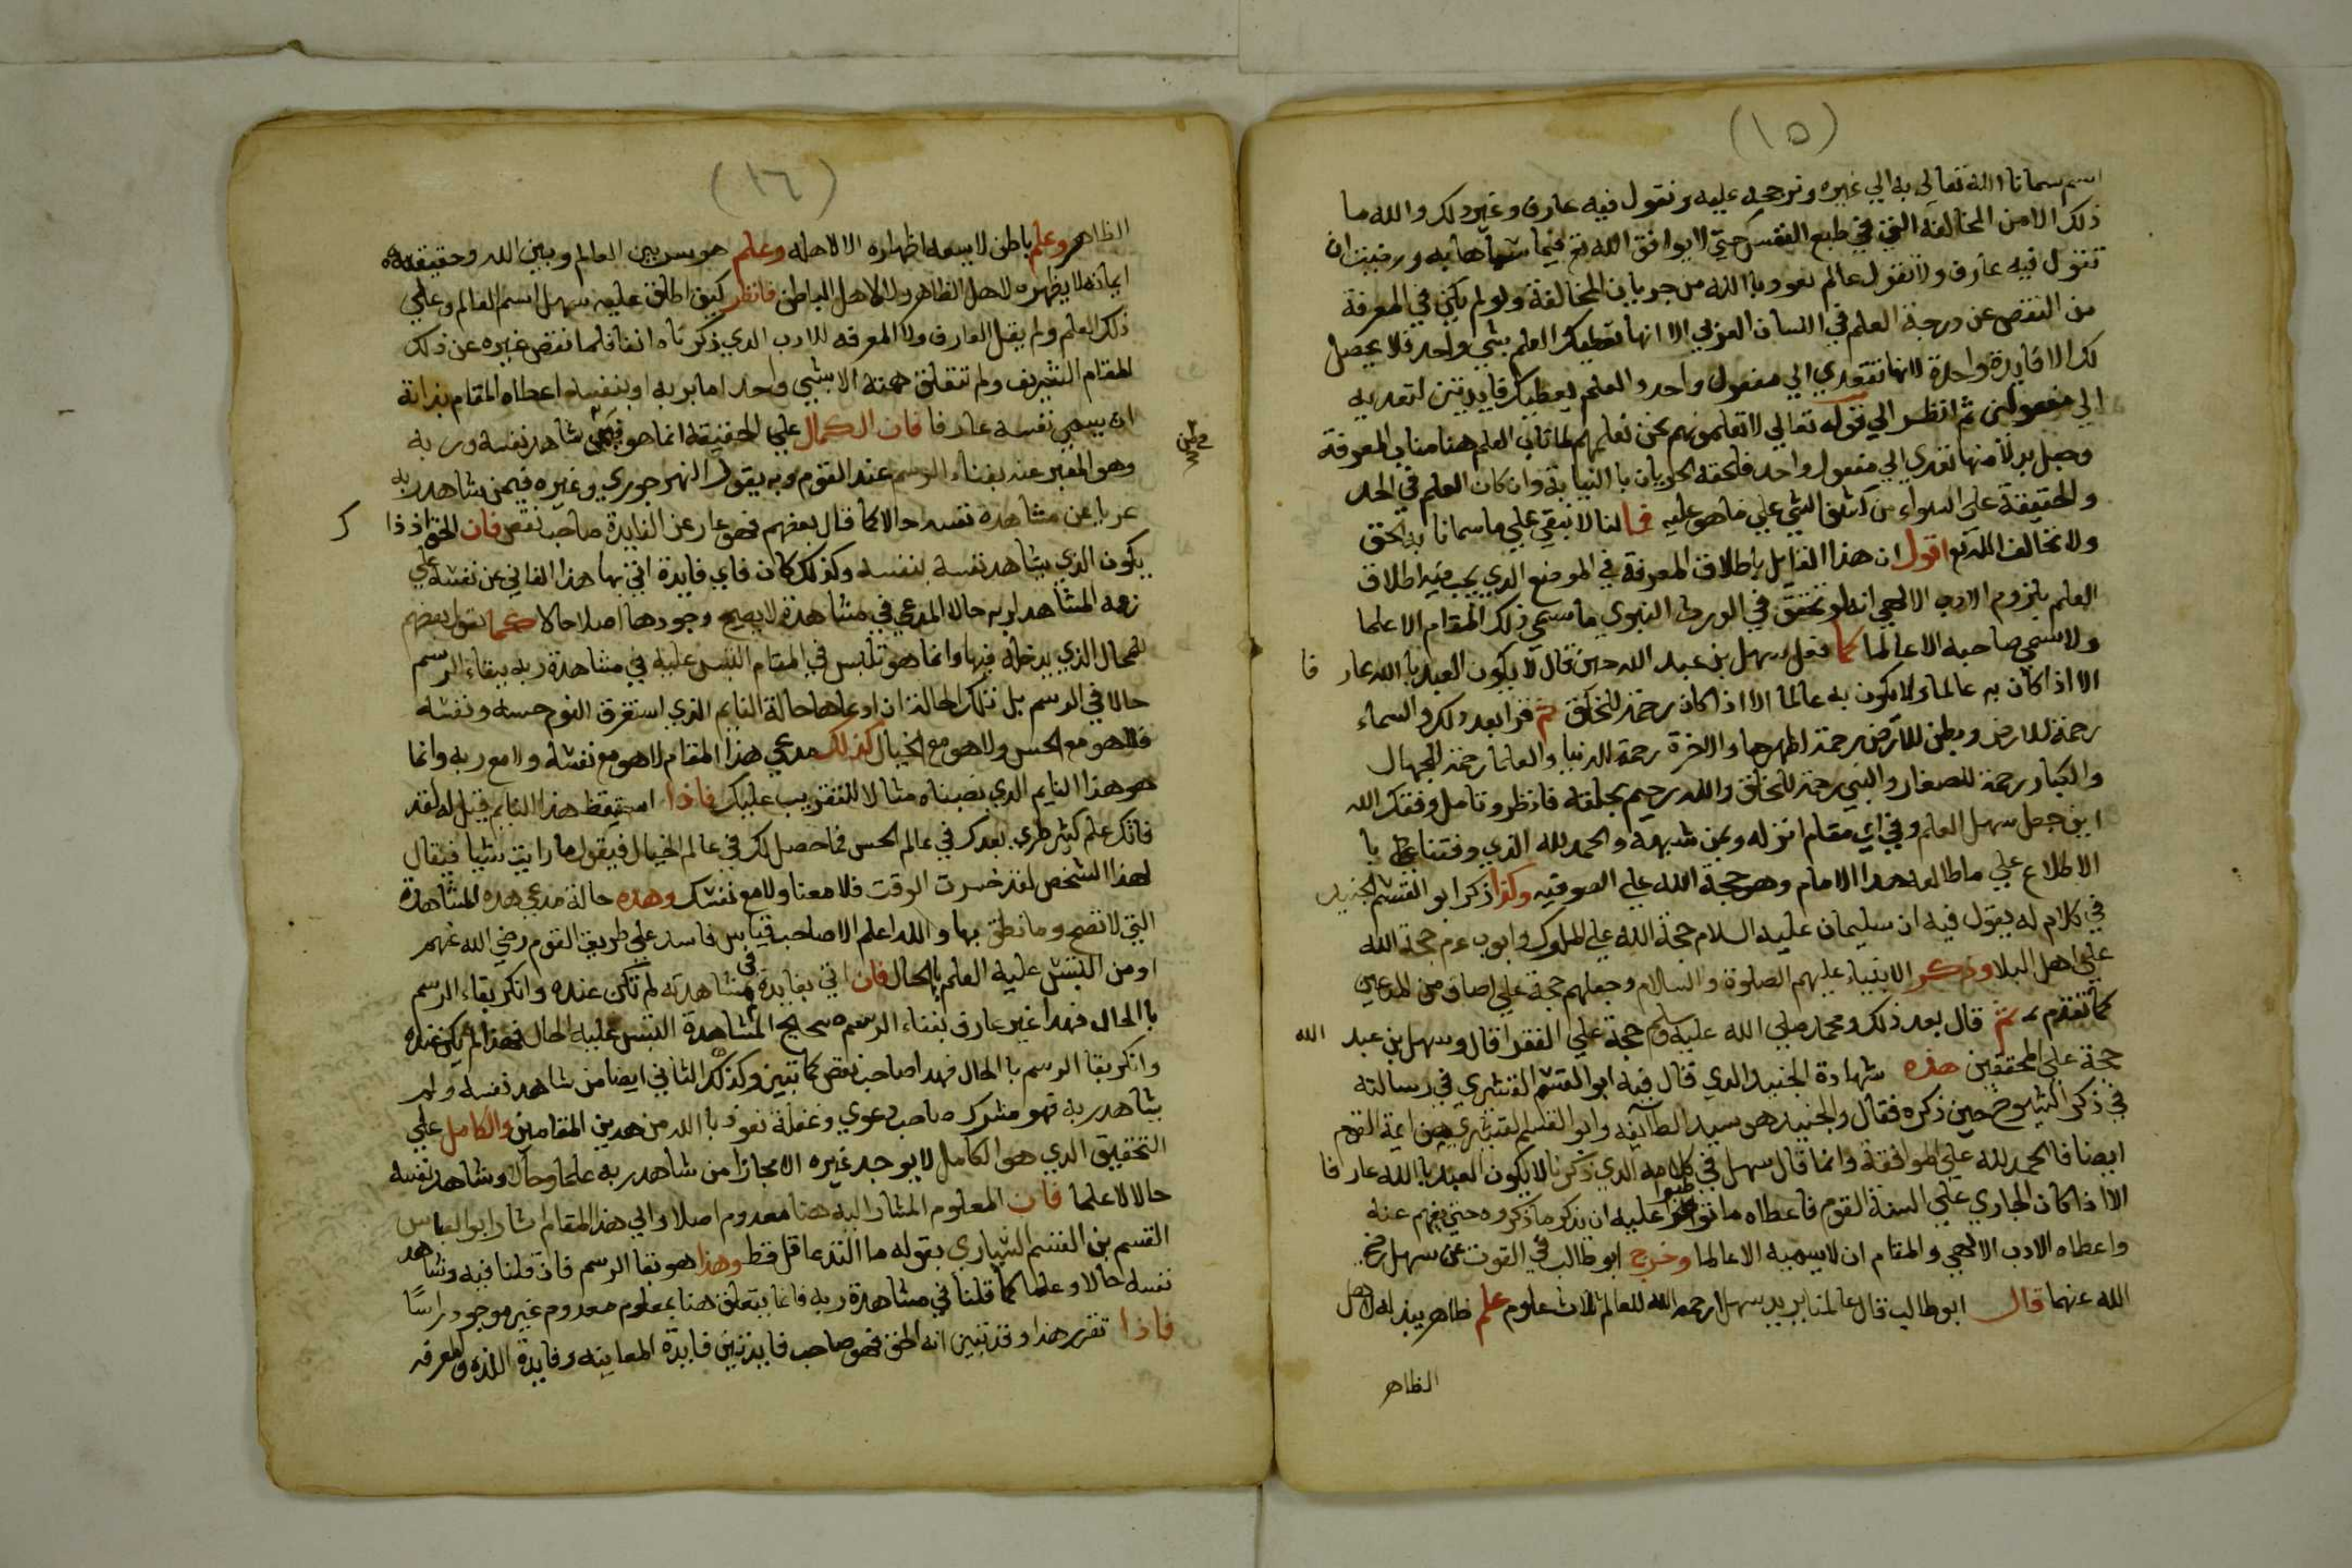 (١٥)
اسم سمانا الله تعالى به الي غيره ونرجحه عليه ونقول فيه عارف وغير ذلك والله ما
ذلك الا من المخالفة التي في طبع النفس حتي لا يوافق الله تع فيما سماها به ورضيت ان
تقول فيه عارف ولا تقول عالم نعوذ با الله من جريان المخالفة ولو لم يكن في المعرفة
من النقص عن درجة العلم في اللسان العربي الا انها تعطيك العلم بشي واحد فلا يحصل
لك الا فايدة واحدة لانها تتعدي الي مفعول واحد والعلم يعطيك فايدتين لتعديه
الي مفعولين ثم انظر الي قوله تعالي لا تعلمونهم نحن نعلمهم لما ناب العلم هنا مناب المعرفة
وجعل بدلا منها تعدي الي مفعول واحد فلحقه الحرمان با النيابة وان كان العلم في الحد
والحقيقة علي السواء من كشف الشي علي ما هو عليه فما لنا لا نبقي علي ما سمانا به الحق
ولا نخالف الله تع اقول ان هذا القايل باطلاق المعرفة في الموضع الذي يجب فيه اطلاق
العلم يلزوم الادب الالهي انه لو تحقق في الورث النبوي ما سمي ذلك المقام الا علما
ولا سمي صاحبه الا عالما كما فعل سهل بن عبد الله حين قال لا يكون العبد با الله عار فا
الا اذا كان به عالما ولا يكون به عالما الا اذا كان رحمة للخلق ثم قرا بعد ذلك والسماء
رحمة للارض وبطن للارض رحمة لظهرها والاخرة رحمة للدنيا والعلما رحمة للجهال
والكبار رحمة للصغار والنبي رحمة للخلق والله رحيم بخلقه فانظر وتامل وفقك الله
اين جعل سهل العلم وفي اي مقام انزله وبمن شبهه والحمد لله الذي وفقنا با
الاطلاع علي ما طالعه هذا الامام وهو حجة الله علي الصوفيه وكذا ذكر ابو القسم الجنيد
في كلام له يقول فيه ان سليمان عليه السلام حجة الله علي الملوك وايوب عم حجة الله
علي اهل البلا وذكر الانبياء عليهم الصلوة والسلام وجعلهم حجة علي اصناف من المدعين
كما تقدم ثم قال بعد ذلك ومحمد صلي الله عليه وسلم حجة علي الفقرا قال وسهل بن عبد الله
حجة علي المحققين هذه شهادة الجنيد الذي قال فيه ابو القسم القشيري في رسالته
في ذكر الشيوخ حين ذكره فقال والجنيد هو سيد الطايفه وابو القسم القشيري من ايمة القوم
ايضا فا الحمد لله علي الموافقة وانما قال سهل في كلامه الذي ذكرنا لا يكون العبد با الله عارفا
الا اذا كان الجاري علي السنة القوم فاعطاه ما تواطوا عليه ان يذكر ما ذكروه حتي يفهم عنه
واعطاه الادب الالهي والمقام ان لا يسميه الا عالما وخرج ابو طالب في القوت عن سهل رضي
الله عنهما قال ابو طالب قال عالمنا يريد سهل رحمه الله للعالم ثلاث علوم علم ظاهر يبذله لاهل
الظاهر
(١٦)
الظاهر وعلم باطن لا يسعه اظهاره الا لاهله وعلم هو سر بين العالم وبين الله وحقيقة
ايمانه لا يظهره لاهل الظاهر ولا لاهل الباطن فانظر كيف اطلق عليه سهل اسم العالم وعلي
ذلك العلم ولم يقل العارف ولا المعرفه للادب الذي ذكرناه انفا فلما نقص غيره عن ذلك
المقام الشريف ولم تتعلق همته الا بشي واحد اما بربه او بنفسه اعطاه المقام بذاته
ان يسمي نفسه عارفا فان الكمال علي الحقيقة انما هو فيمن شاهد نفسه وربه
وهو المعبر عنه بفناء الرسم عند القوم وبه يقول النهرجوري وغيره فيمن شاهد ربه
عريا عن مشاهدة نفسه حالا كما قال بعضهم فهو عار عن الفايدة صاحب نقص فان الحق اذ ذا ك
يكون الذي يشاهد نفسه بنفسه وكذلك كان فاي فايدة اتي بها هذا الفاني عن نفسه علي
زعمه المشاهد لربه حالا المدعي في مشاهدة لا يصح وجودها اصلا حالا كما يقول بعضهم
للمحال الذي يدخله فيها وانما هو تلبس في المقام التبس عليه في مشاهدة ربه ببقاء الرسم
حالا في الرسم بل تلك الحالة ان ادعاها حالة النايم الذي استغرق النوم حسه ونفسه
فلا هو مع الحس ولا هو مع الخيال كذلك مدعي هذا المقام لا هو مع نفسه ولا مع ربه وانما
هو هذا النايم الذي نصبناه مثالا للتقريب عليك فاذا استيقظ هذا النايم قيل له لقد
فاتك علم كثير طري بعدك في عالم الحس فما حصل لك في عالم الخيال فيقول ما رايت شيا فيقال
لهذا الشخص لقد خسرت الوقت فلا معنا ولا مع نفسك وهذه حالة مدعي هذه المشاهدة
التي لا تصح وما نطق بها والله اعلم الا صاحب قياس فاسد علي طريق القوم رضي الله عنهم
او من التبس عليه العلم بالحال فان اتي بفايدة في مشاهدته لم تكن عنده وانكر بقاء الرسم
با الحال فهذا غير عارف بفناء الرسم صحيح المشاهدة التبس عليه الحال فهذا لم يكن عنده
وانكر بقا الرسم با الحال فهذا صاحب نقص كما تبين وكذلك الثاني ايضا من شاهد نفسه ولم
يشاهد ربه فهو مشرك صاحب دعوي وغفلة نعوذ با الله من هذين المقامين والكامل علي
التحقيق الذي هو الكامل لا يوجد غيره الا مجازا من شاهد ربه علما وحالا وشاهد نفسه
حالا لا علما فان المعلوم المشار اليه هنا معدوم اصلا والي هذا المقام اشار ابو العباس
القسم بن القسم السياري بقوله ما التذ عاقل قط وهذا هو بقا الرسم فان قلنا فيه وشاهد
نفسه حالا وعلما كما قلنا في مشاهدة ربه فانما يتعلق هنا بمعلوم معدوم غير موجود راسًا
فاذا تقرر هذا وقد تبين انه الحق فهو صاحب فايدتين فايدة المعاينه وفايدة اللذه والمعرفه